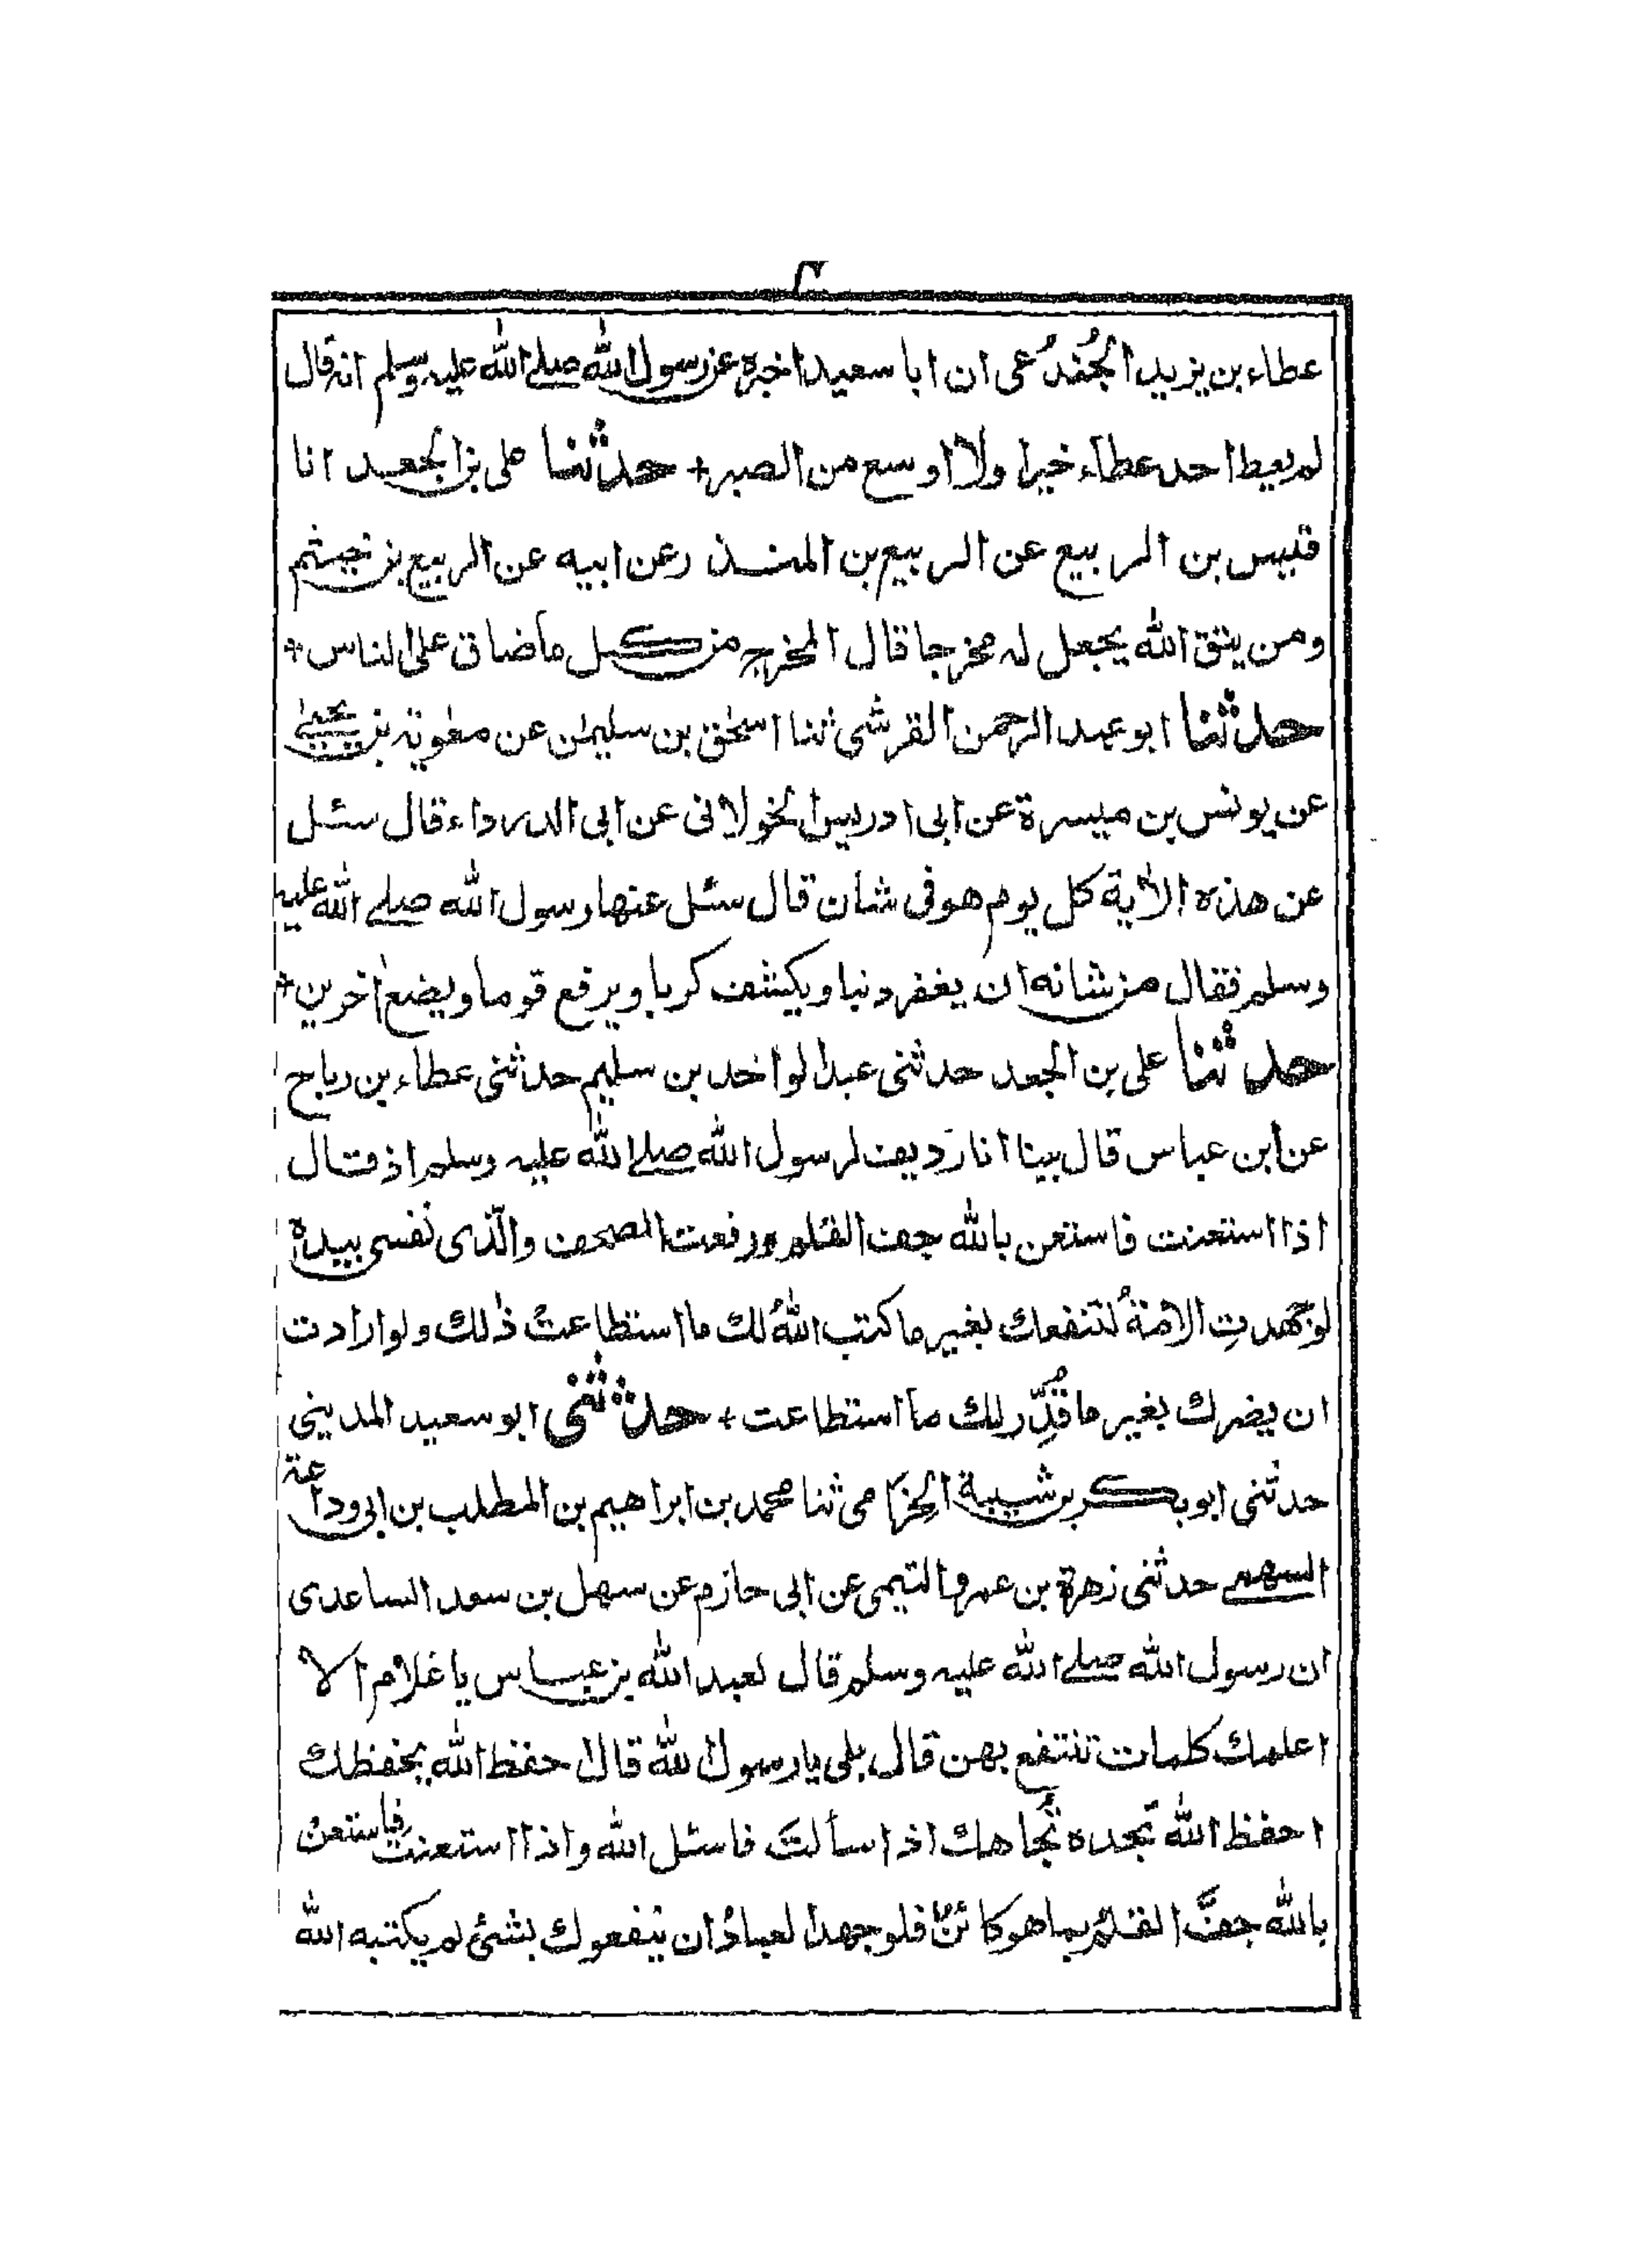 ٢
عطاء بن يزيد الجُنْدُعى ان ابا سعيد اخبره عن رسول الله صلى الله عليه وسلم انه قال
لم يعط احد عطاء خيرا ولا اوسع من الصبر + حدثنا على بن الجعد انا
قيس بن الربيع عن الربيع بن المنذر عن ابيه عن الربيع بن خيثم
ومن يتق الله يجعل له مخرجا قال المخرج من كل ما ضاق على الناس +
حدثنا ابو عبد الرحمن القرشى ثنا اسحٰق بن سليمٰن عن معٰوية بن يحيىٰ
عن يونس بن ميسرة عن ابى ادريس الخولانى عن ابى الدرداء قال سئل
عن هذه الاٰية كل يوم هو فى شان قال سئل عنها رسول الله صلى الله عليه
وسلم فقال من شانه ان يغفر ذنبا ويكشف كربا ويرفع قوما ويضع اٰخرين +
حدثنا على بن الجعد حدثنى عبد الواحد بن سليم حدثنى عطاء بن رباح
عن ابن عباس قال بينا انا رديف لرسول الله صلى الله عليه وسلم اذ قال
اذا استعنت فاستعن بالله جف القلم ورفعت الصحف والّذى نفسى بيده
لو جهدتِ الامةُ لتنفعك بغير ما كتب اللهُ لك ما استطاعت ذٰلك ولو ارادت
ان يضرك بغير ما قُدِّر لك ما استطاعت + حدثنى ابو سعيد المدينى
حدثنى ابو بكر بن شيبة الحِزامى ثنا محمد بن ابراهيم بن المطلب بن ابى وداعة
السهمى حدثنى زهرة بن عمرو التيمى عن ابى حازم عن سهل بن سعد الساعدى
ان رسول الله صلى الله عليه وسلم قال لعبد الله بن عباس يا غلام الا
اعلمك كلمات تنتفع بهن قال بلى يا رسول الله قال احفظ الله يحفظك
احفظ الله تجده تُجاهك اذا سألتَ فاسئل الله واذا استعنت فاستعن
بالله جفَّ القلمُ بما هو كائنٌ فلو جهد العبادُ ان ينفعوك بشئ لم يكتبه الله